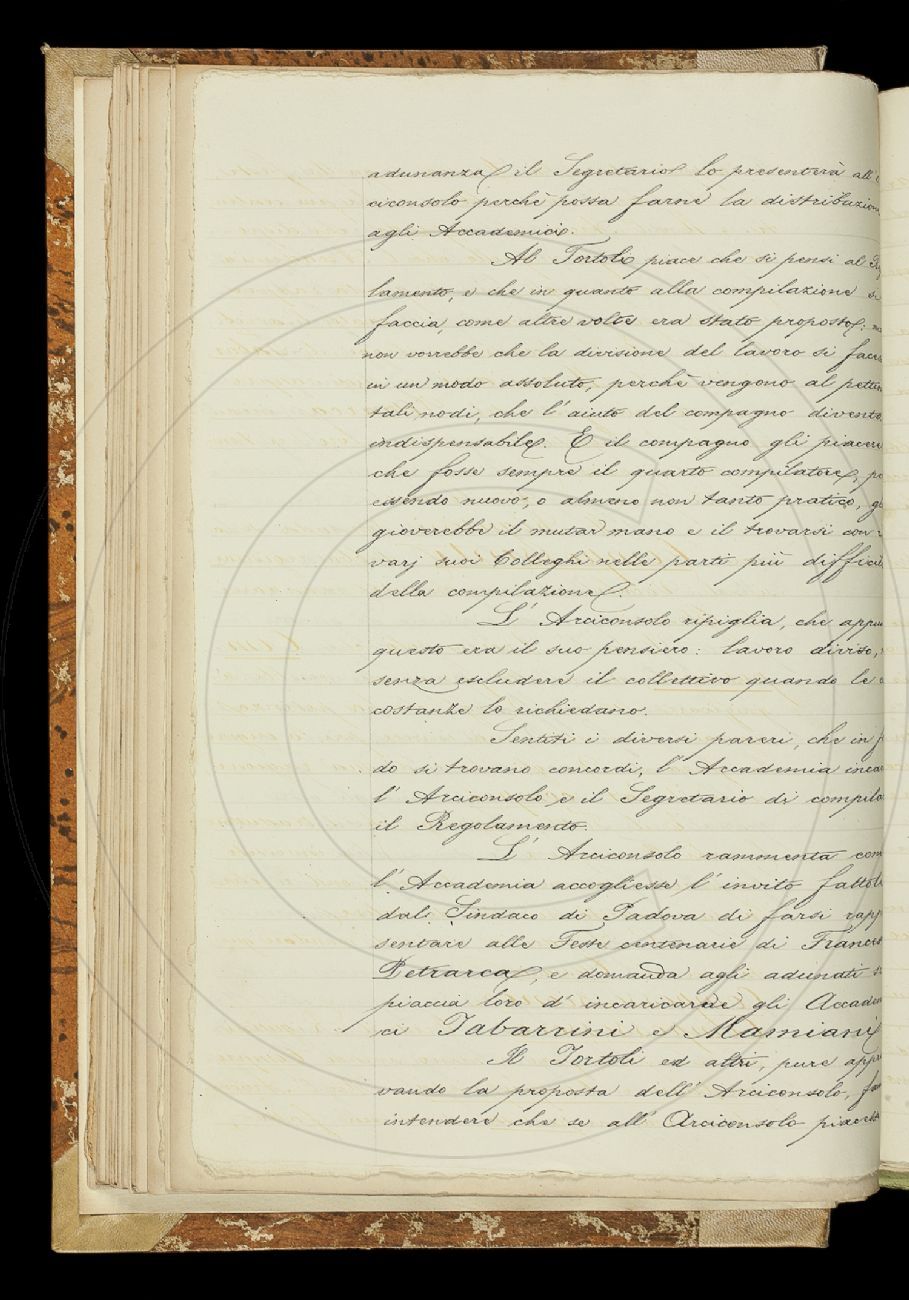 adunanza il Segretario lo presenterà all'
ciconsolo perchè possa farne la distribuzion
agli Accademici.
Al Tortoli piace che si pensi al
lamento, e che in quanto alla compilazione si
faccia, come altre volte era stato proposto:
non vorrebbe che la divisione del lavoro si face
in un modo assoluto, perchè vengono al petti
tali nodi, che l'aiuto del compagno diventa
indispensabile. E il compagno gli piacere
che fosse sempre il quarto compilatore, po
essendo nuovo, o almeno non tanto pratico, gl
gioverebbe il mutar mano e il trovarsi con
varj suoi Colleghi nelle parti più diffici
della compilazione.
L'Arciconsolo ripiglia, che appu
questo era il suo pensiero: lavoro diviso,
senza escludere il collettivo quando le
costanze lo richiedano.
Sentiti i diversi pareri, che in f
do si trovano concordi, l'Accademia incar
l'Arciconsolo e il Segretario di compila
il Regolamento.
L'Arciconsolo rammenta com
l'Accademia accogliesse l'invito fattole
dal Sindaco di Padova di farsi rapp
sentare alle Feste centenarie di Frances
Petrarca, e domanda agli adunati se
piaccia loro d'incaricarne gli Accadem
ci Tabarrini e Mamiani
Il Tortoli ed altri, pure appro
vando la proposta dell'Arciconsolo, fan
intendere che se all'Arciconsolo piacess